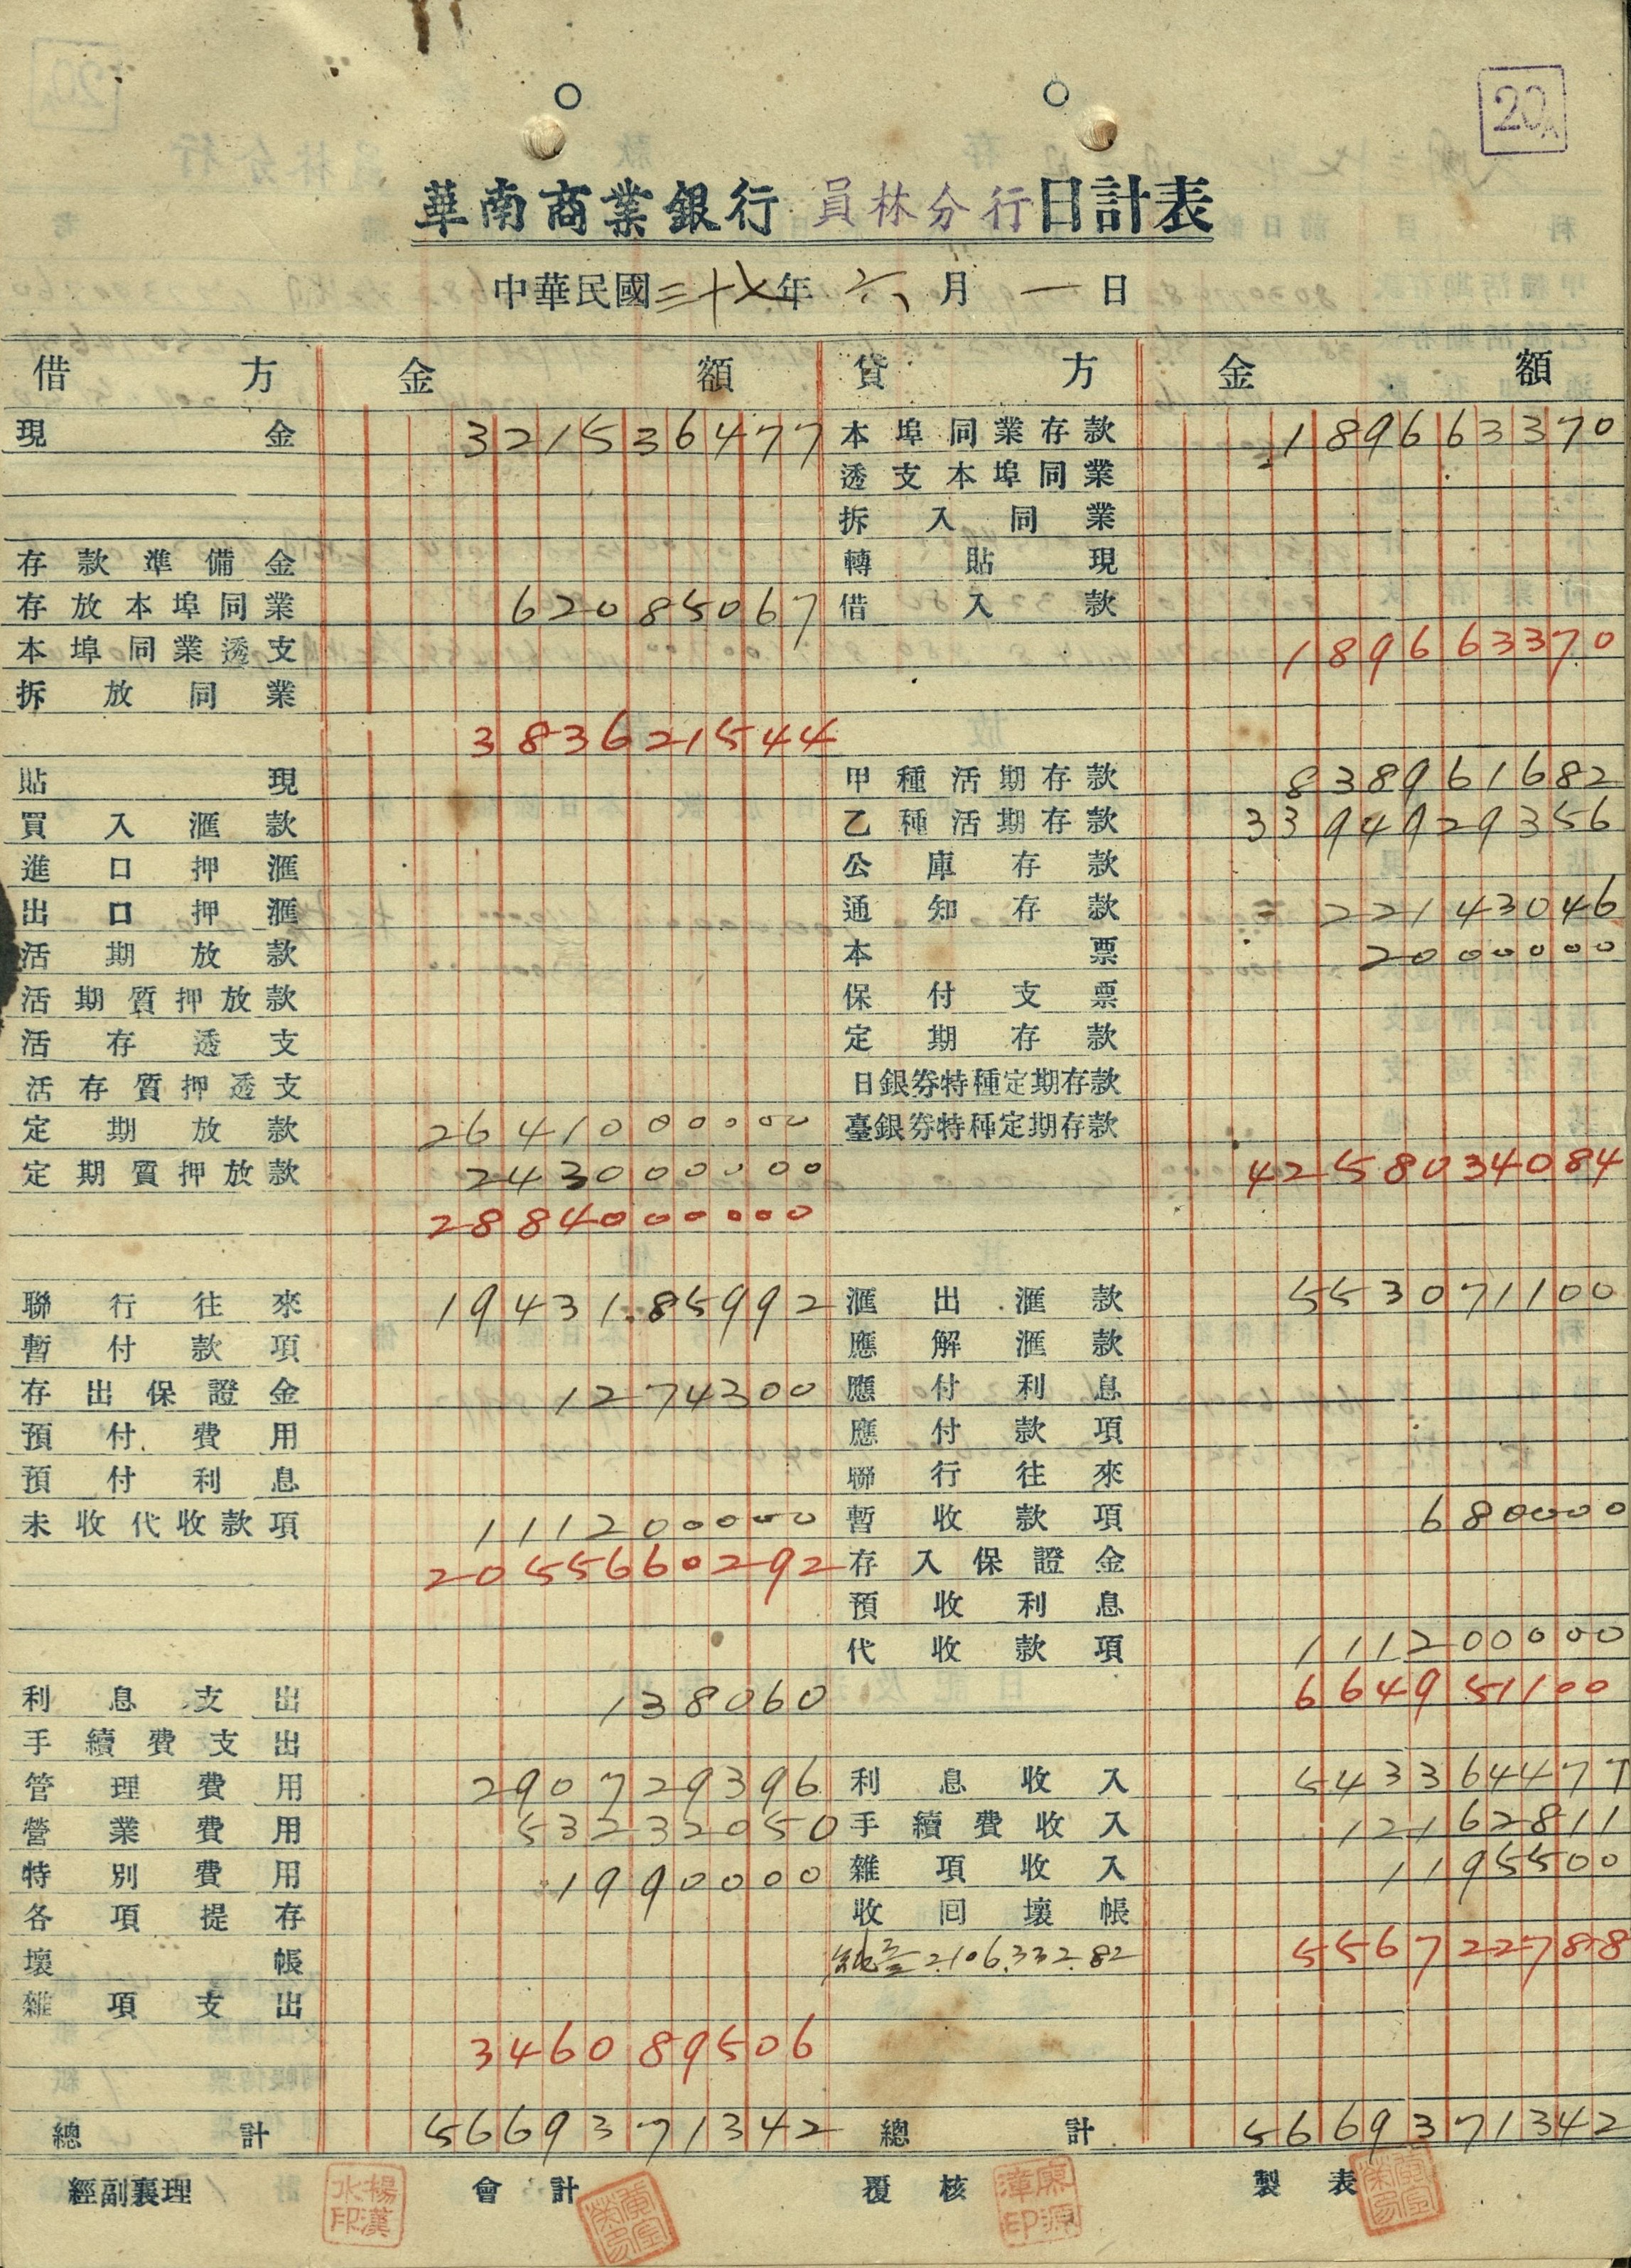 20A
華南商業銀行 員林分行 日計表
中華民國三十七年 六月 一日
借方 金額 貸方 金額
現金 321536477 本埠同業存款 189663370
透支本埠同業
拆入同業
存款準備金 轉貼現
存放本埠同業 62085067 借入款
本埠同業透支 189663370
拆放同業
383621544
貼現 甲種活期存款 838961682
買入滙款 乙種活期存款 3394929356
進口押滙 公庫存款
出口押滙 通知存款 22143046
活期放款 本票 2000000
活期質押放款 保付支票
活存透支 定期存款
活存質押透支 日銀券特種定期存款
定期放款 2641000000 臺銀券特種定期存款
定期質押放款 243000000 4258034084
2884000000
聯行往來 1943185992 滙出滙款 553071100
暫付款項 應解滙款
存出保證金 1274300 應付利息
預付費用 應付款項
預付利息 聯行往來
未收代收款項 111200000 暫收款項 680000
2055660292 存入保證金
預收利息
代收款項 111200000
利息支出 138060 664951100
手續費支出
管理費用 290729396 利息收入 543364477
營業費用 53232050 手續費收入 12162811
特別費用 1990000 雜項收入 1195500
各項提存 收回壞帳
壞帳 純益2,106,332.82 556722788
雜項支出
346089506
總計 5669371342 總計 5669371342
經副襄理 楊漢水印 會計 覆核 廖源漳印 製表